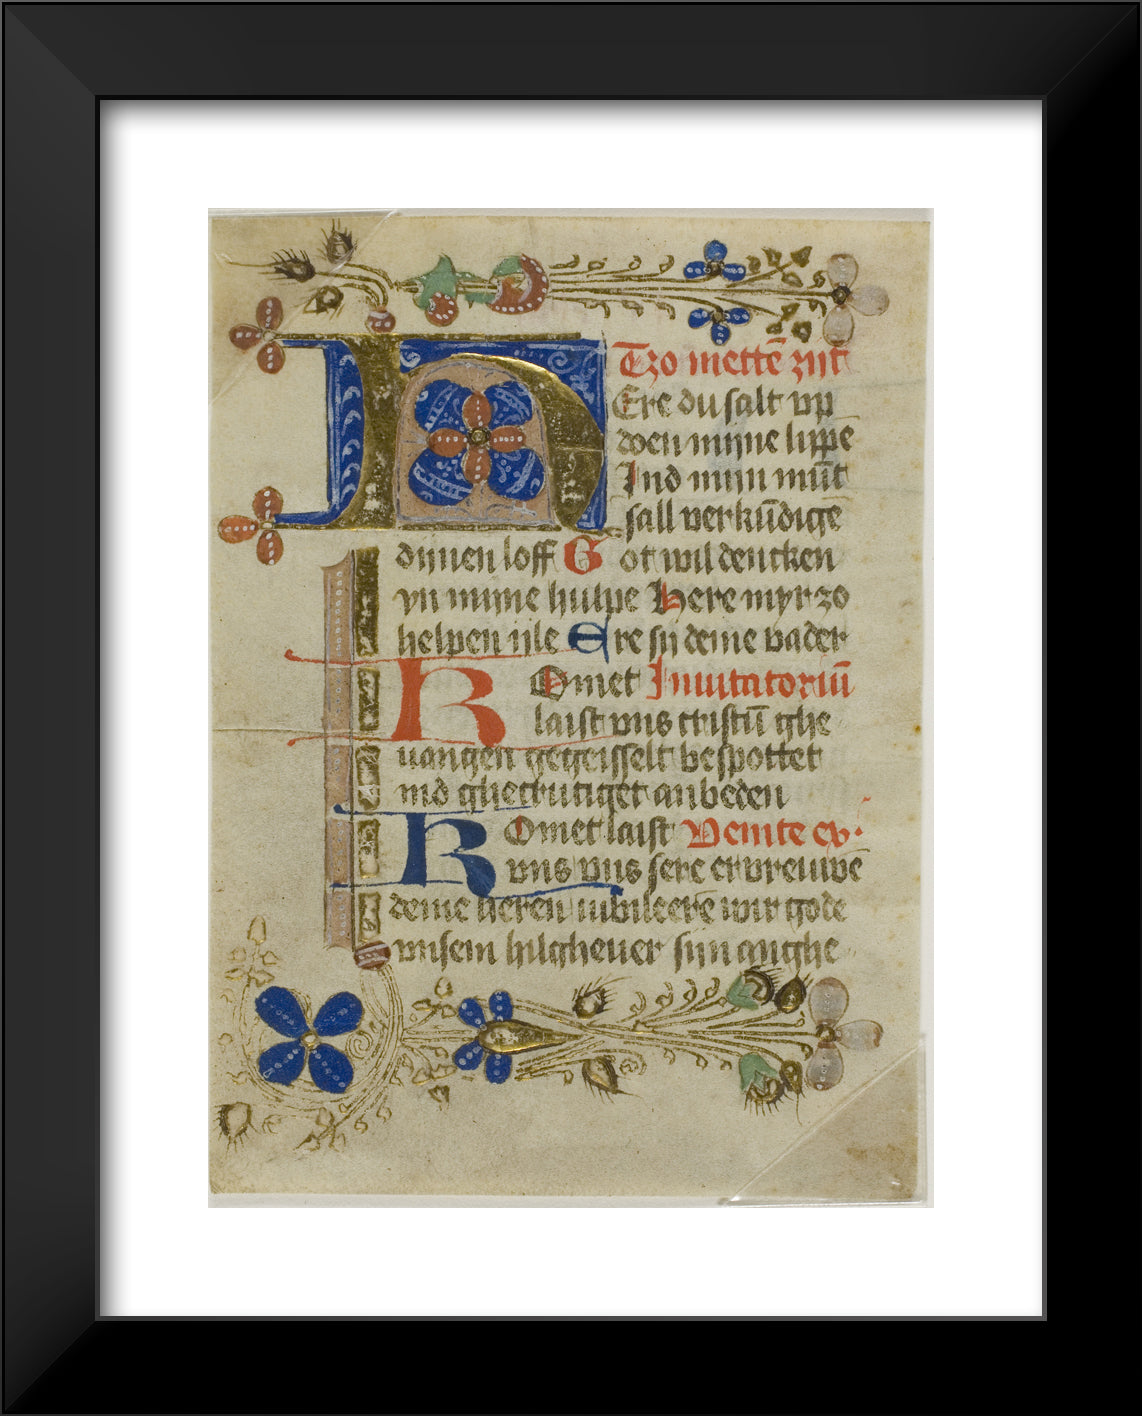 Tzo mettē zijt
HEre du salt vp
doen mijne lippe
Ind mijn mūt
sall verkūdige
dijnen loff Got wil dencken
yn mijne hulpe Here myr zo
helpen ijle Ere sij deme vader
KOmet Inuitatoriū
laist vns cristū ghe
uangen gegeisselt bespottet
ind ghecrutiget anbeden
KOmet laist Venite ex.
vns vns sere ervreuwē
deme heren iubileerē wir gode
vnsem hilgheuer sijn anghe